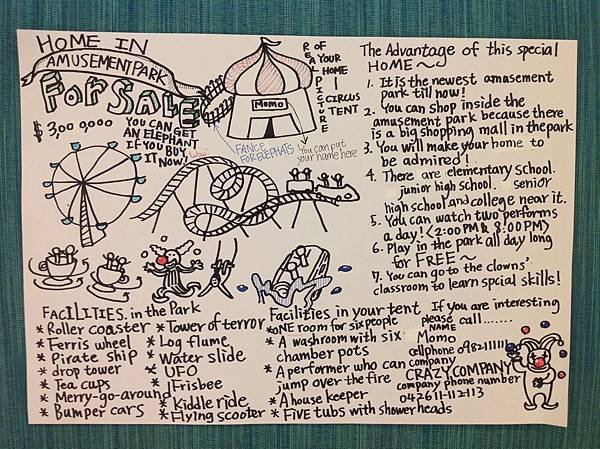 HOME IN
AMUSEMENT PARK
FOR SALE
$ 3,000,000
YOU CAN GET
AN ELEPHANT
IF YOU BUY
IT NOW!
Wow!
REAL PICTURE
OF YOUR HOME - CIRCUS TENT
MOMO
FANCE
FOR ELEPHATS
You can put
your name here
The Advantage of this special
HOME~
1. It is the newest amusement
park till now!
2. You can shop inside the
amusement park because there
is a big shopping mall in the park
3. You will make your home to
be admired!
4. There are elementary school.
junior high school. senior
high school and college near it.
5. You can watch two performs
a day! <2:00 PM & 8:00 PM>
6. Play in the park all day long
for FREE~
7. You can go to the clowns'
classroom to learn spcial skills!
FACILITIES in the Park
* Roller coaster
* Ferris wheel
* Pirate ship
* drop tower
* Tea cups
* Merry-go-around
* Bumper cars
* Tower of terror
* Log flume
* Water slide
* UFO
* Frisbee
* Kiddle ride
* Flying scooter
Facilities in your tent
* ONE room for six people
* A washroom with six
chamber pots
* A performer who can
jump over the fire
* A house keeper
* FIVE tubs with shower heads
If you are interesting
please call.......
NAME
Momo
cellphone 0982-111111
company
CRAZY COMPANY
company phone number
042611-112113